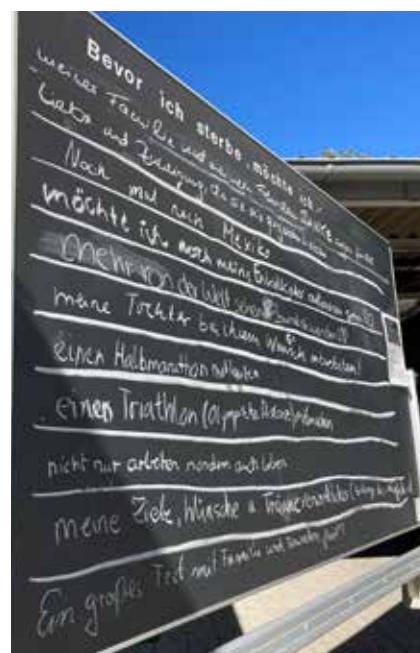 Bevor ich sterbe, möchte ich...
meiner Familie und meinen Freunden DANKE sagen für die
Liebe und
Noch mal nach Mexiko
möchte ich noch meine
Mehr von der Welt sehen
meine Tochter bei ihrem Wunsch unterstützen!
einen Halbmarathon mitlaufen
einen Triathlon (Olympische Distanz) mitmachen
nicht nur arbeiten sondern auch leben
meine Ziele, Wünsche u Träume verwirklichen
Ein großes Fest mit Familie und Freunden